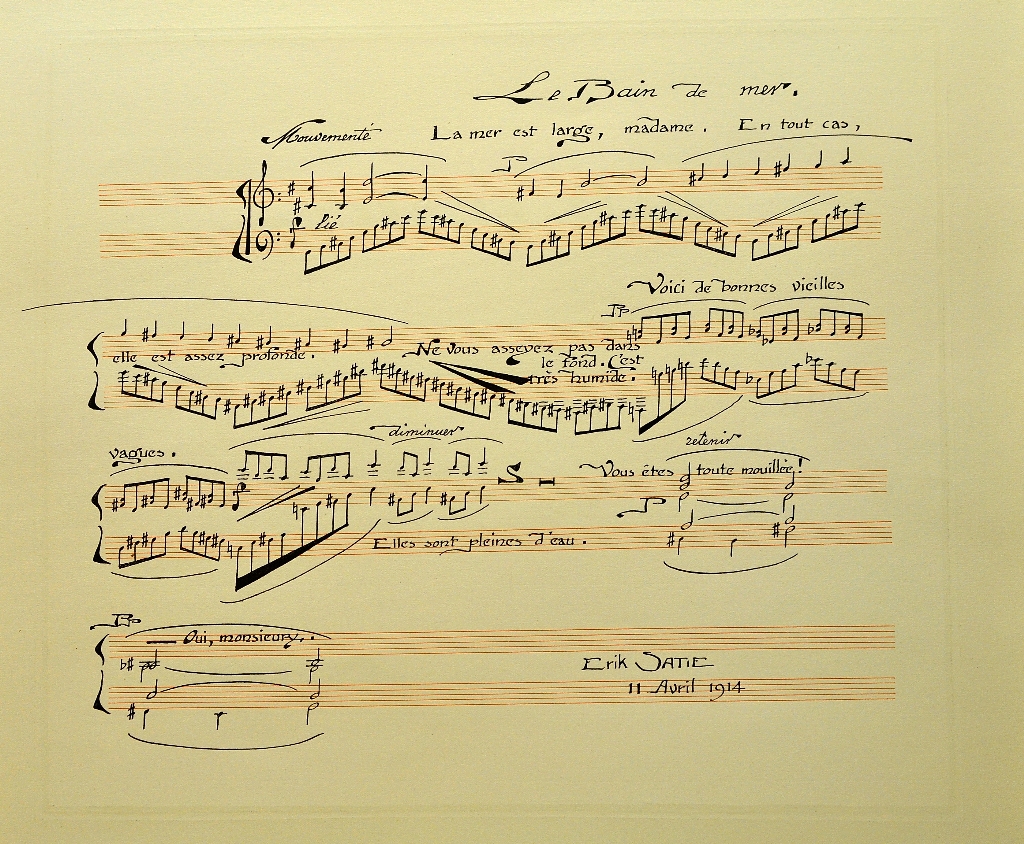 Le Bain de mer.
Mouvementé La mer est large, madame. En tout cas,
P
f lié
Voici de bonnes vieilles
PP
elle est assez profonde. Ne vous asseyez pas dans
le fond. C'est
très humide.
diminuer
retenir
vagues.
Vous êtes toute mouillée!
f
P
Elles sont pleines d'eau.
PP
— Oui, monsieur.
Erik SATIE
11 Avril 1914